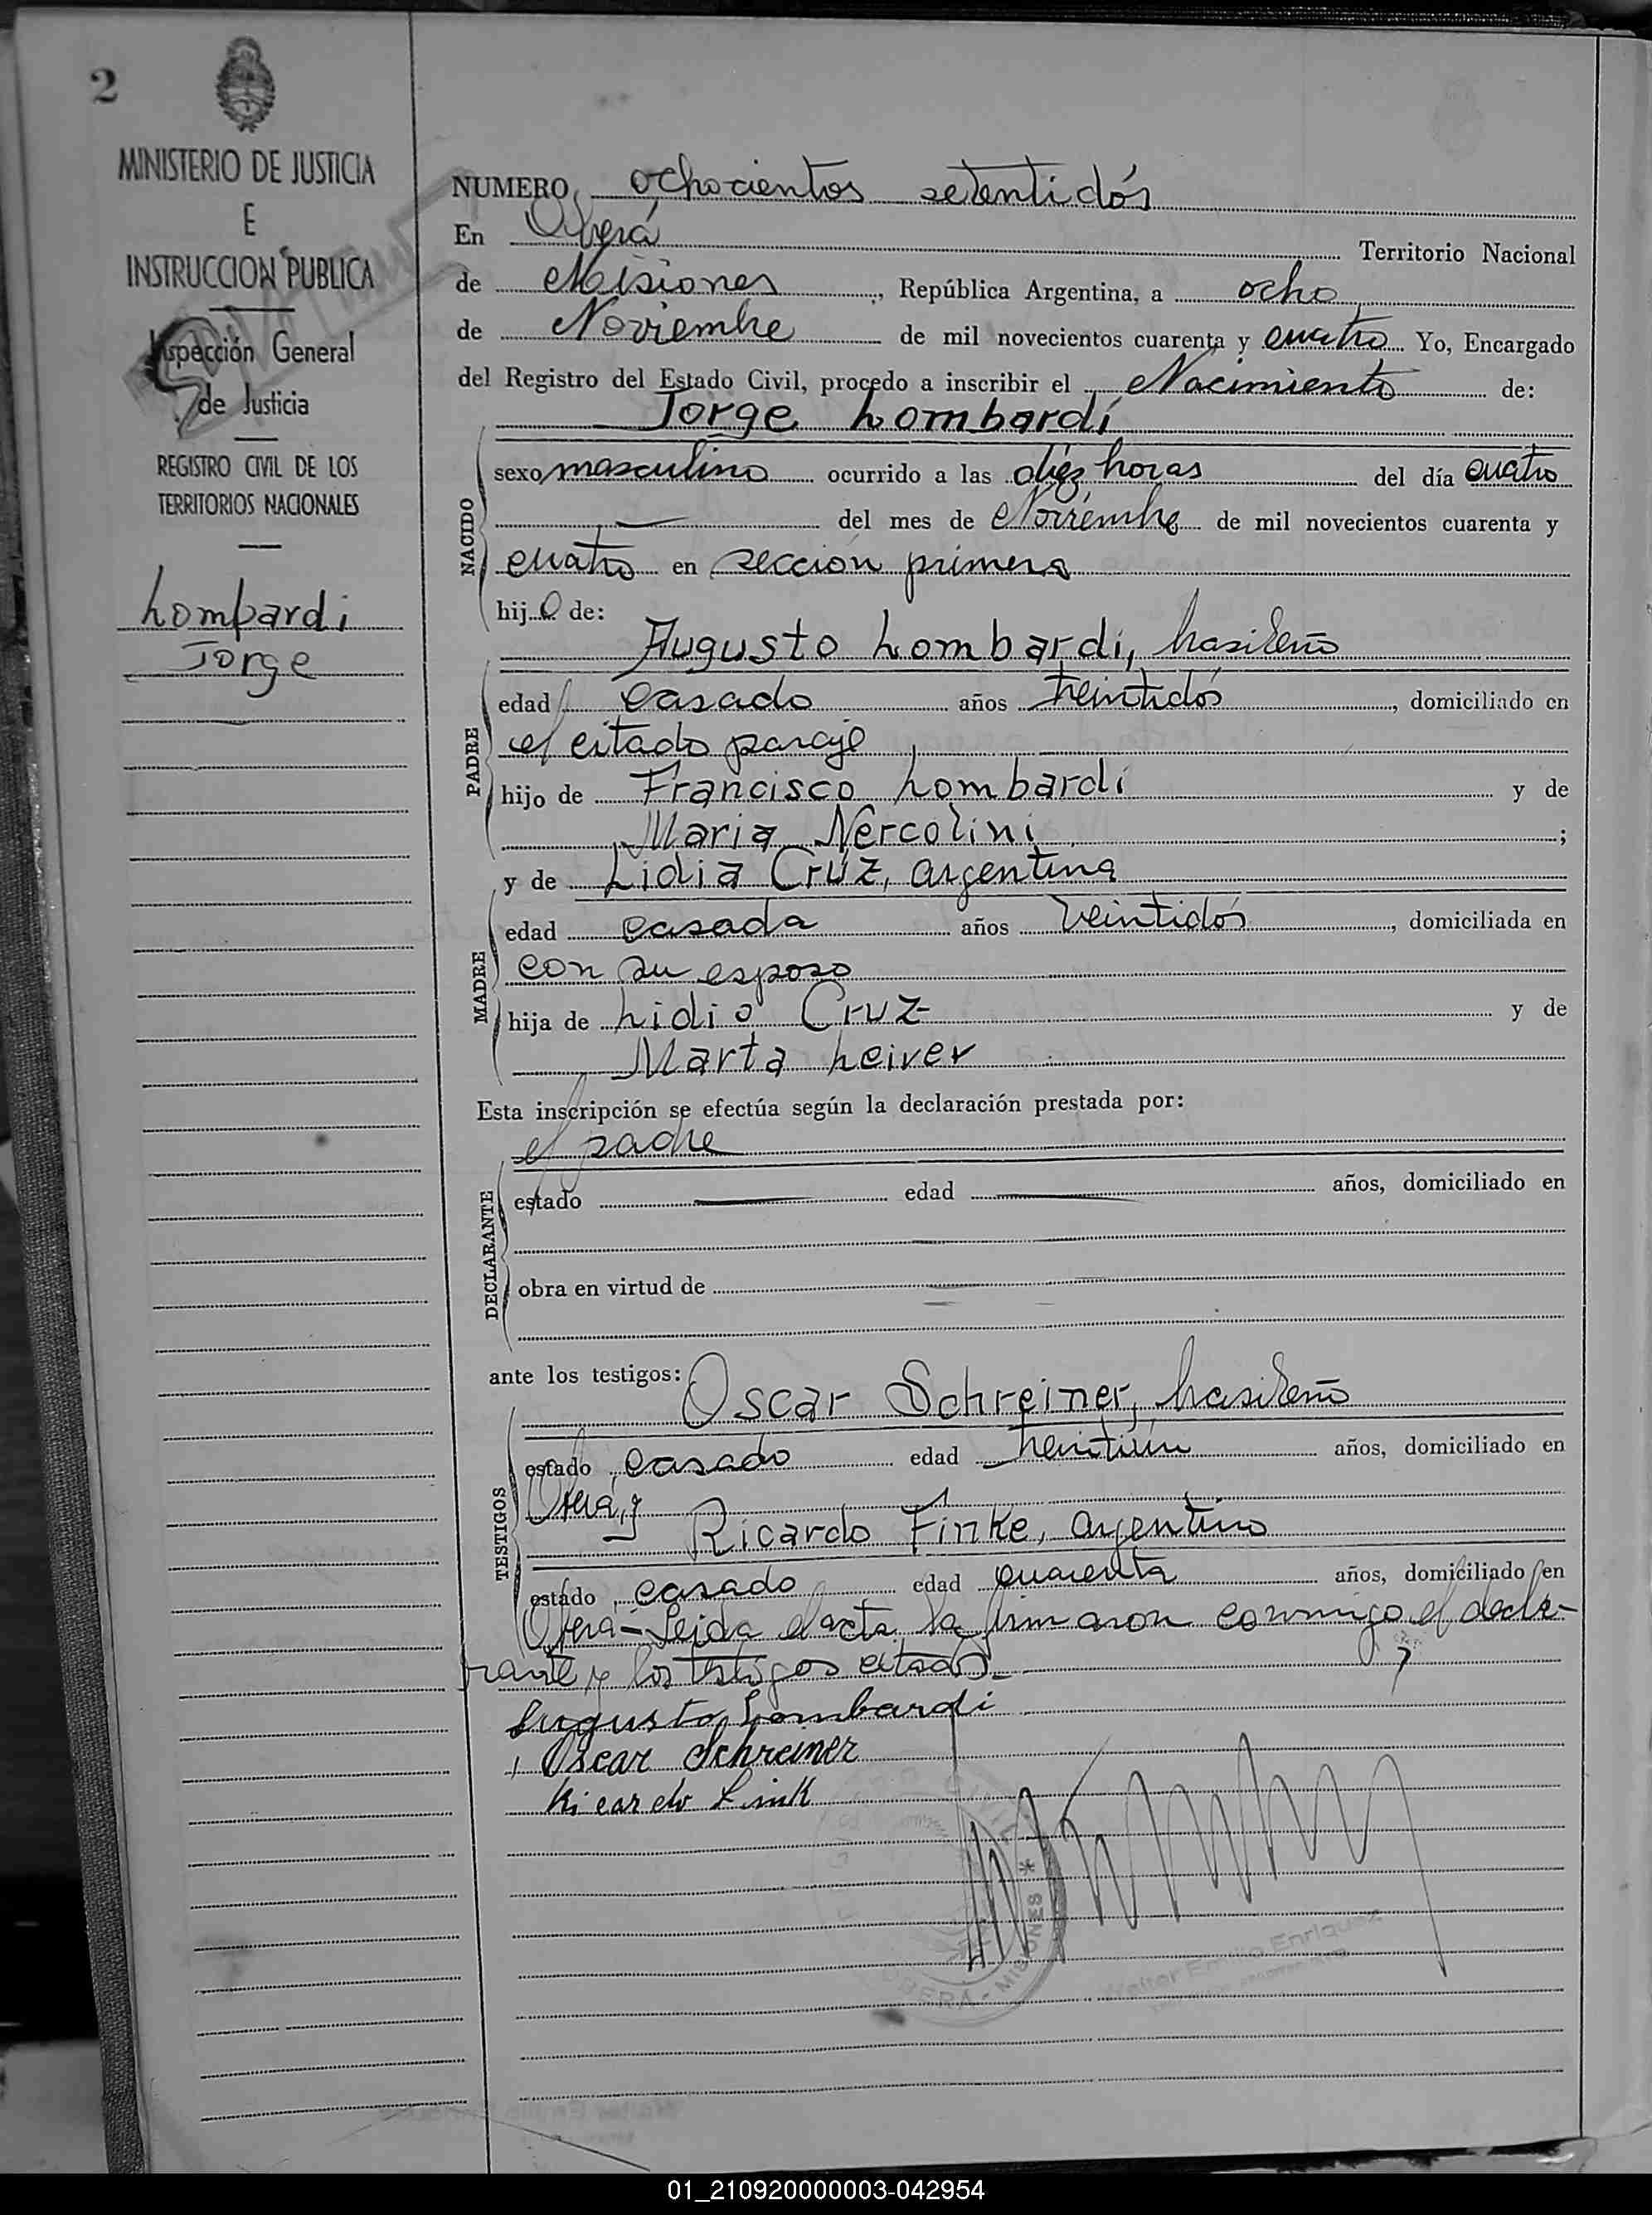 2
MINISTERIO DE JUSTICIA
E
INSTRUCCION PUBLICA
Inspección General
de Justicia
REGISTRO CIVIL DE LOS
TERRITORIOS NACIONALES
Lombardi
Jorge
NUMERO ochocientos setentidós
En Oberá Territorio Nacional
de Misiones, República Argentina, a ocho
de Noviembre de mil novecientos cuarenta y cuatro Yo, Encargado
del Registro del Estado Civil, procedo a inscribir el Nacimiento de:
Jorge Lombardi
NACIDO
sexo masculino ocurrido a las diez horas del día cuatro
del mes de Noviembre de mil novecientos cuarenta y
cuatro en sección primera
hijo de:
Augusto Lombardi, brasileño
PADRE
edad casado años treintidós, domiciliado en
el citado paraje
hijo de Francisco Lombardi y de
Maria Nercolini;
y de Lidia Cruz, argentina
MADRE
edad casada años veintidós, domiciliada en
con su esposo
hija de Lidio Cruz y de
Marta Leiver
Esta inscripción se efectúa según la declaración prestada por:
el padre
DECLARANTE
estado edad años, domiciliado en
obra en virtud de
ante los testigos:
Oscar Schreiner, brasileño
TESTIGOS
estado casado edad treintiún años, domiciliado en
Oberá, y
Ricardo Finke, argentino
estado casado edad cuarenta años, domiciliado en
Oberá - Leida el acta la firmaron conmigo el decla-
rante y los testigos citados.-
Augusto Lombardi
Oscar Schreiner
Ricardo
OBERÁ - MISIONES
Walter Emilio Enriquez
01_210920000003-042954